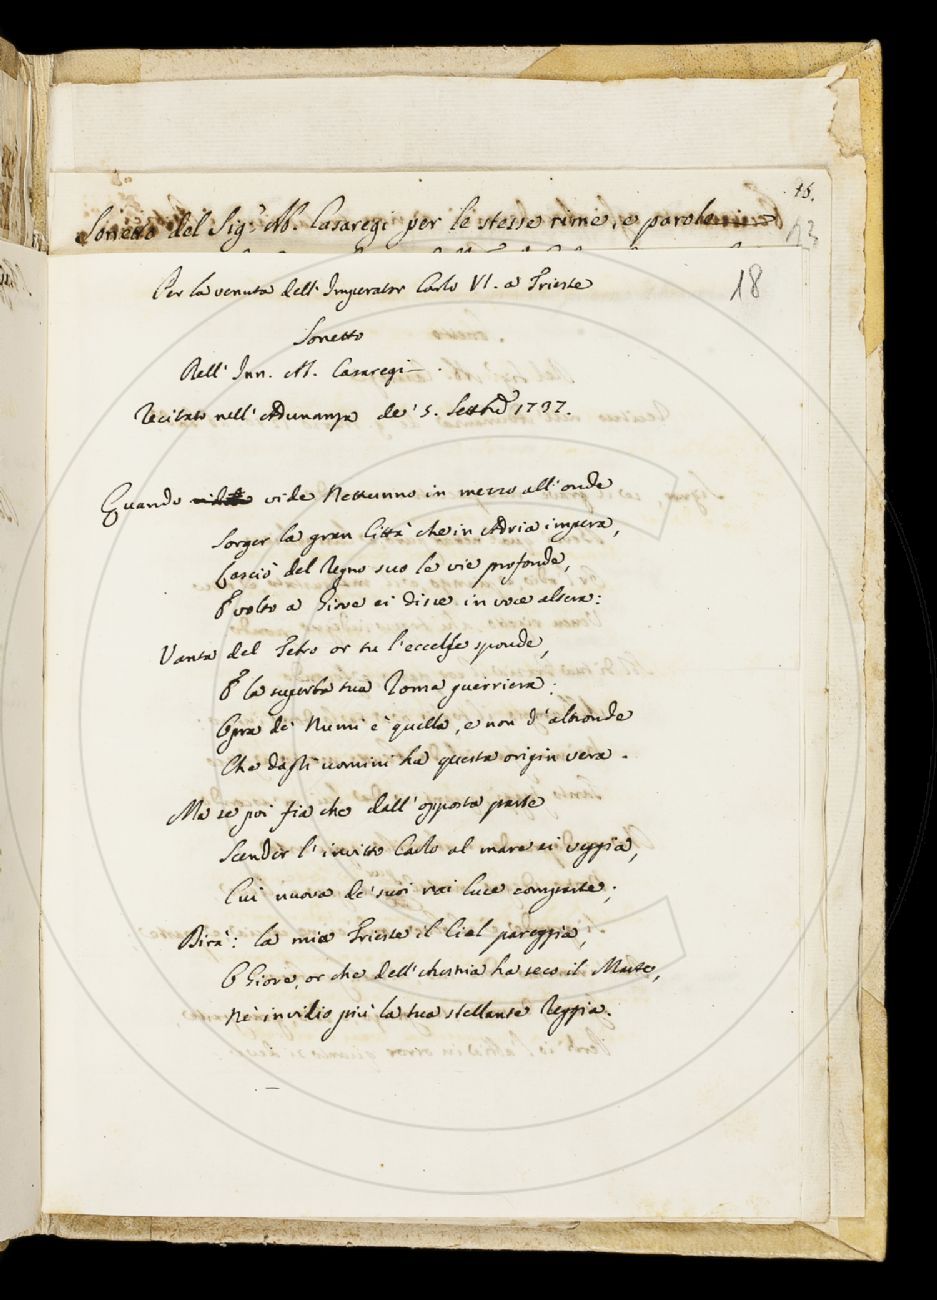 16.
Sonetto del Sig.r Ab. Casaregi per le stesse rime, e parole
13
18
Per la venuta dell' Imperator Carlo VI. a Trieste
Sonetto
Dell' Inn. Ab. Casaregi
Recitato nell' Adunanza de' 5. Setthre 1737.
Quando vide Nettunno in mezzo all' onde
Sorger la gran Città che in Adria impera,
Lasciò del Regno suo le vie profonde,
E volto a Giove ei disse in voce altera:
Vanta del Tebro or tu l' eccelse sponde,
E la superba tua Roma guerriera:
Opra de' Numi è quella, e non d' altronde
Che dagli uomini ha questa origin vera.
Ma se poi fia che dall' opposta parte
Scender l' invitto Carlo al mare ei veggia,
Cui nuova de' suoi rai luce comparte;
Dirà: la mia Trieste il Ciel pareggia,
O Giove, or che dell' Austria ha seco il Marte,
Nè invidio più la tua stellante Reggia.